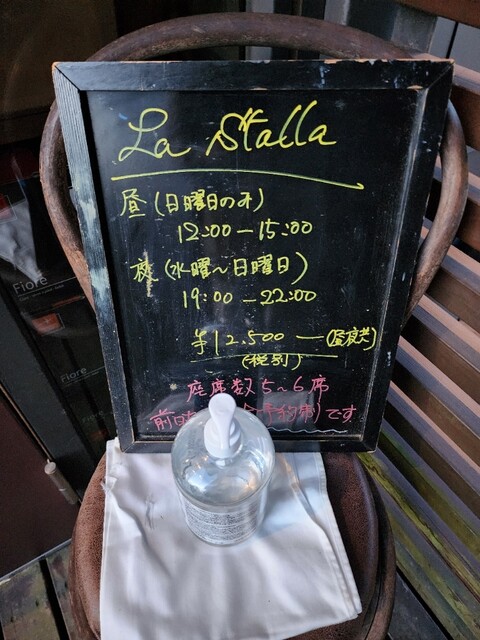 La Stalla
昼(日曜日のみ)
12:00-15:00
夜(水曜〜日曜日)
19:00-22:00
¥12.500-(昼夜共)
(税別)
座席数5〜6席
前日 予約制です
Fiore
Fiore